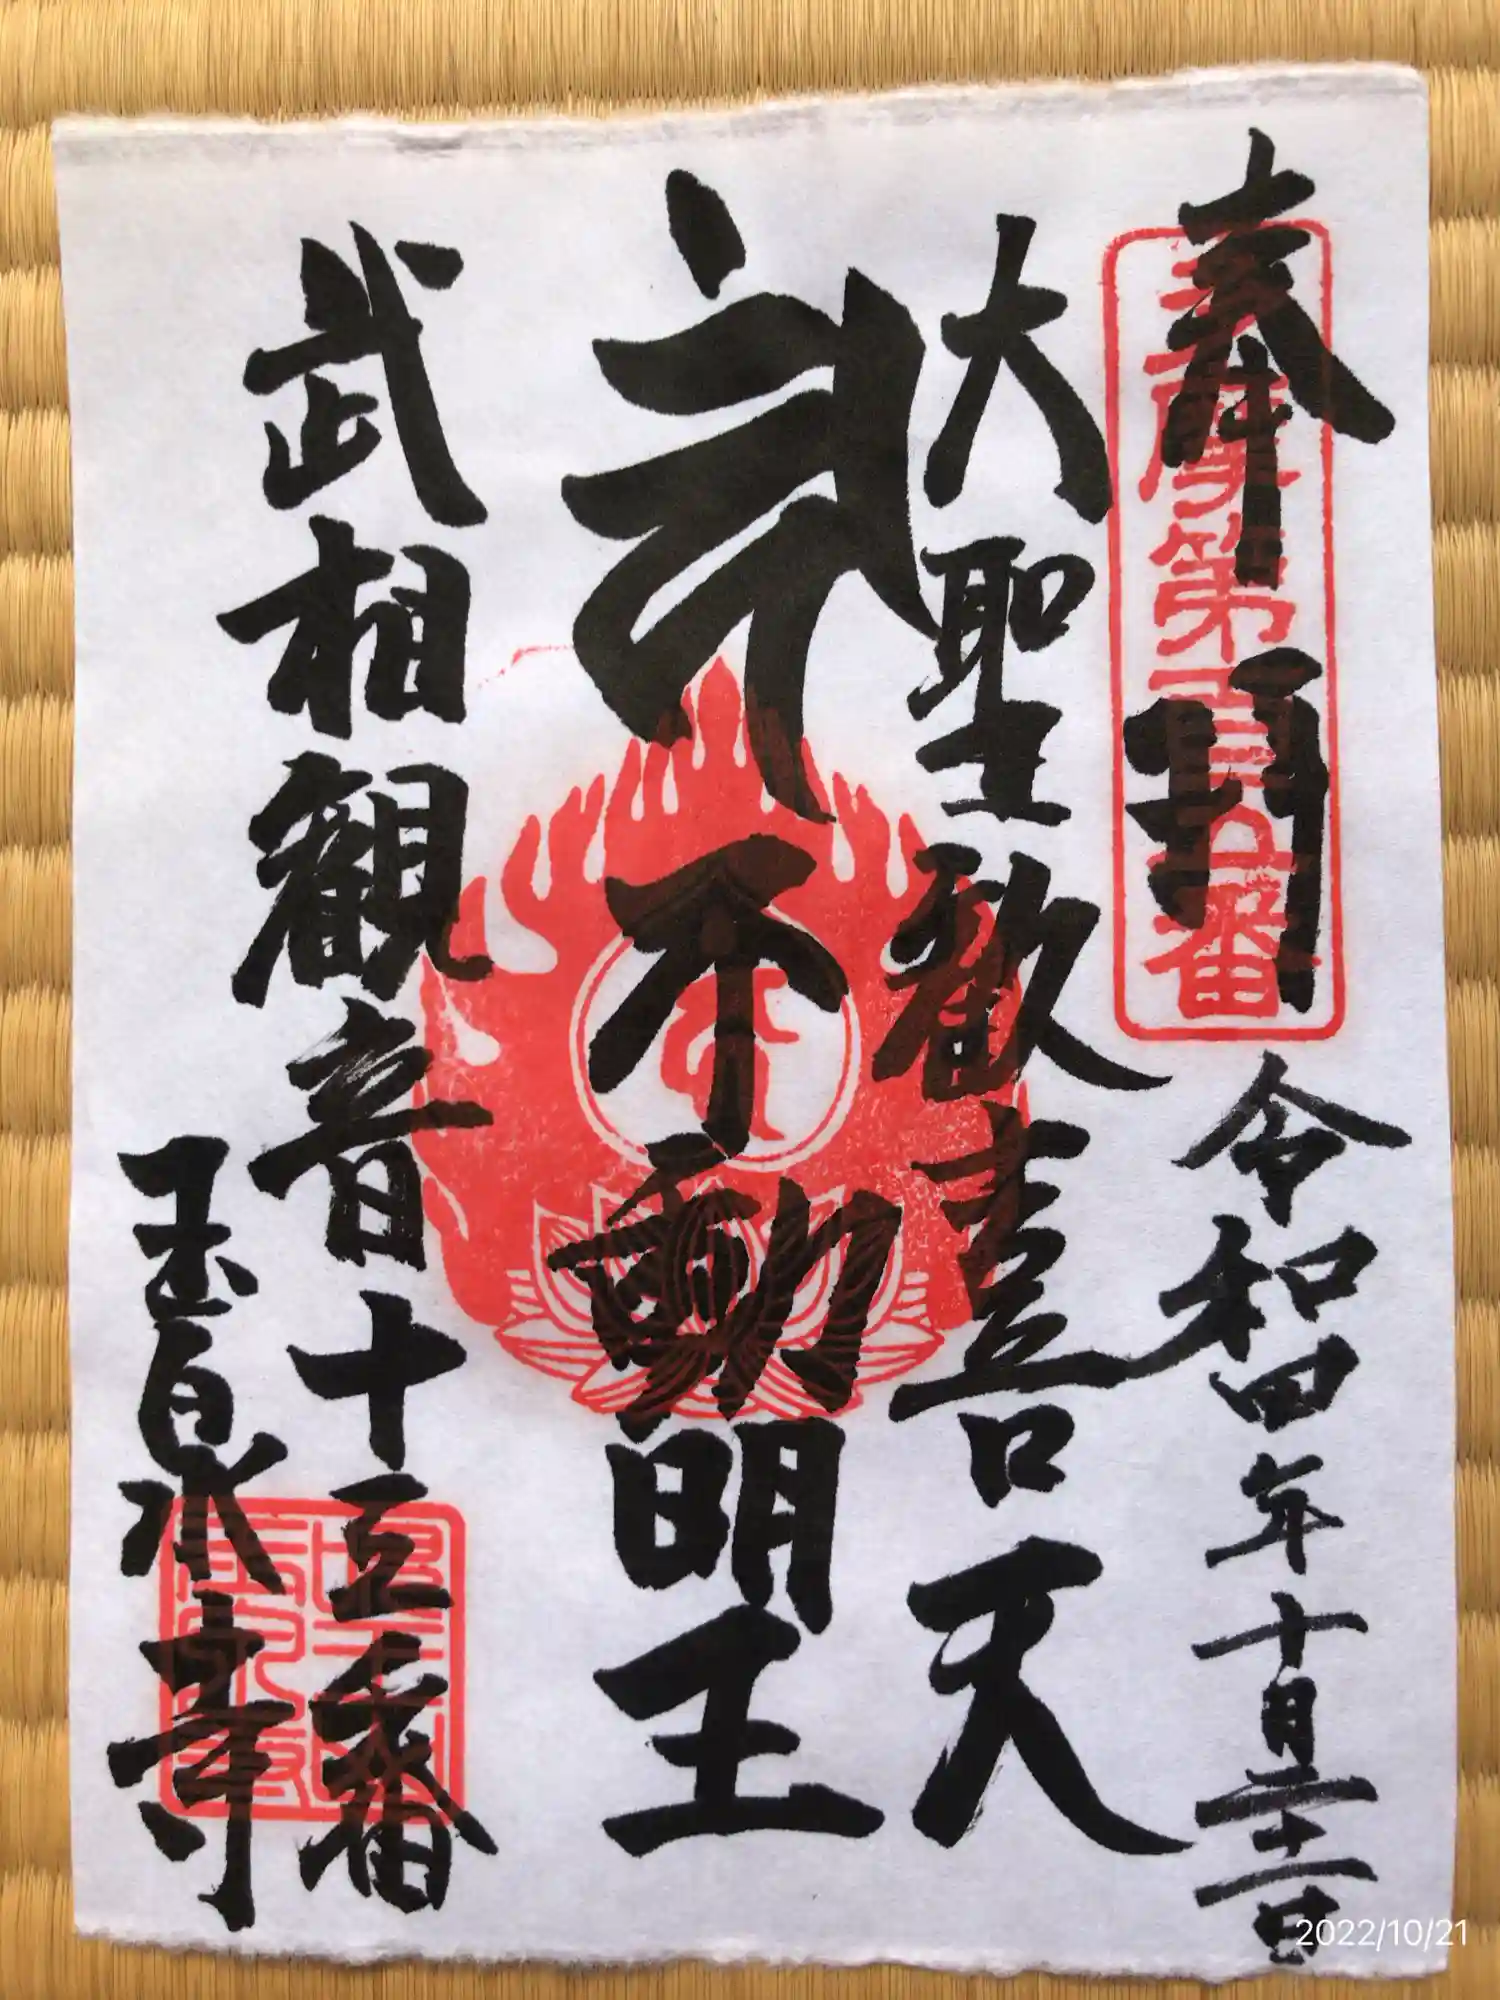 奉拝
令和四年十月二十一日
大聖歓喜天
不動明王
武相観音十五番
玉泉寺
2022/10/21